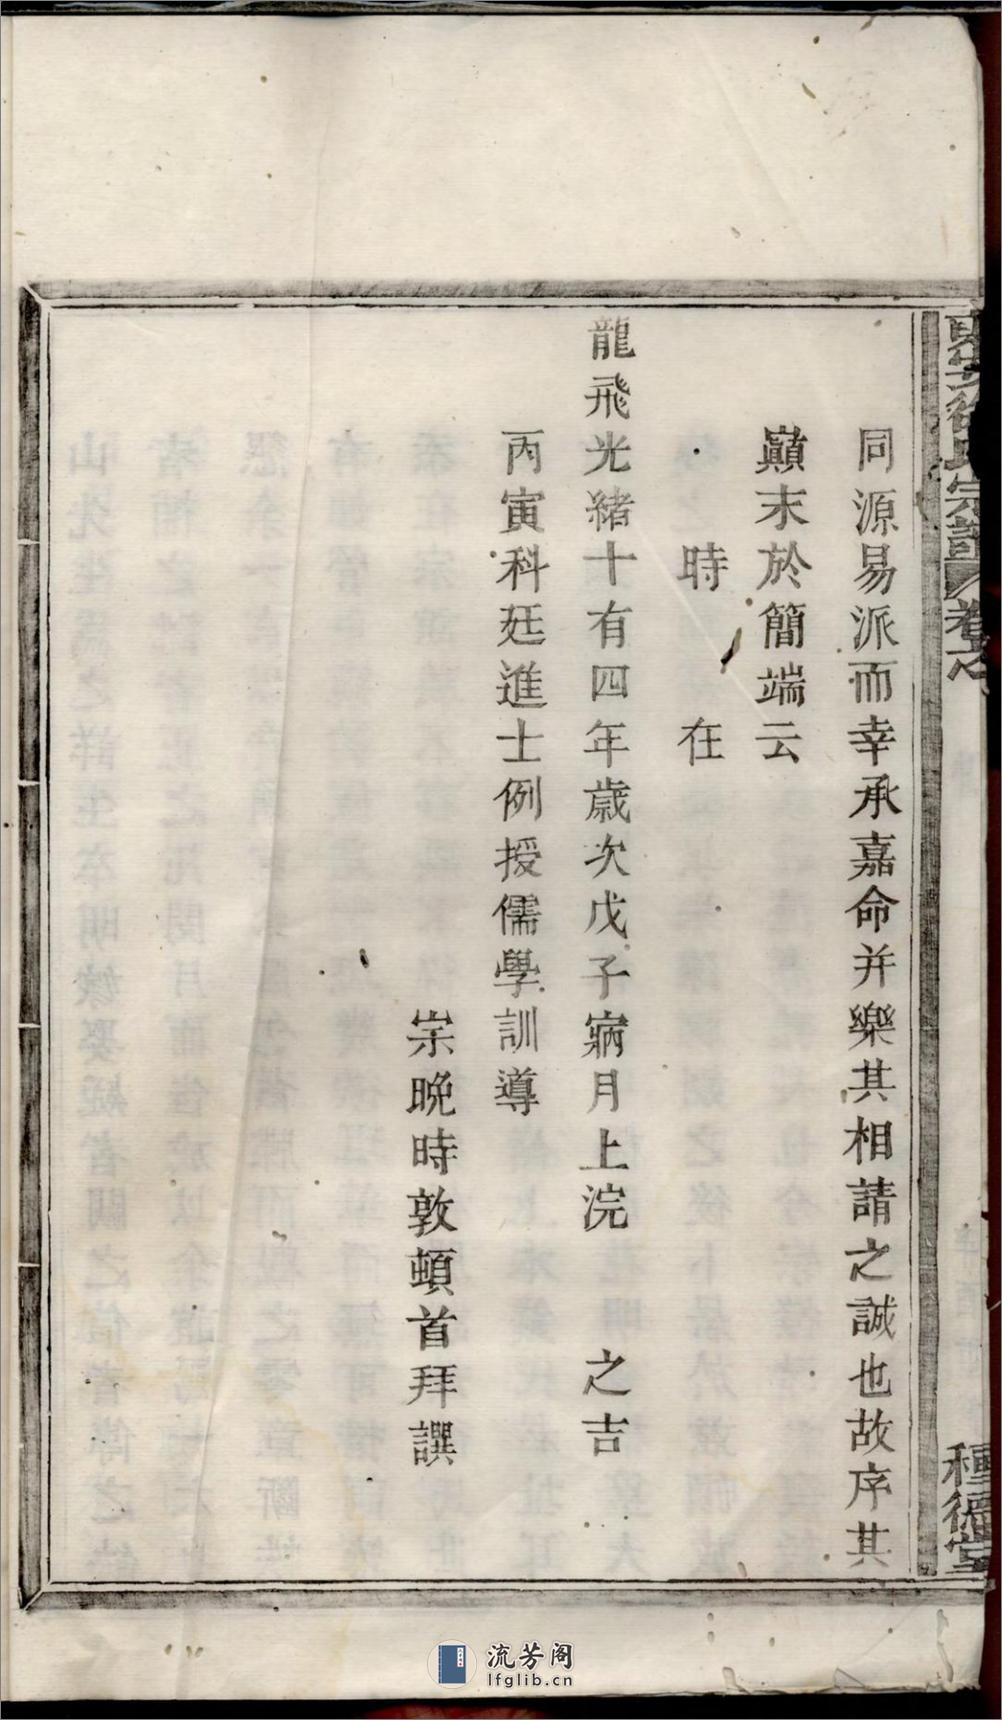 宗譜 卷之
種德堂
同源易派而幸承嘉命并樂其相請之誠也故序其
巔末於簡端云
時 在
龍飛光緒十有四年歲次戊子寎月上浣 之吉
丙寅科廷進士例授儒學訓導
宗晚時敦頓首拜譔
流芳阁
lfglib.cn